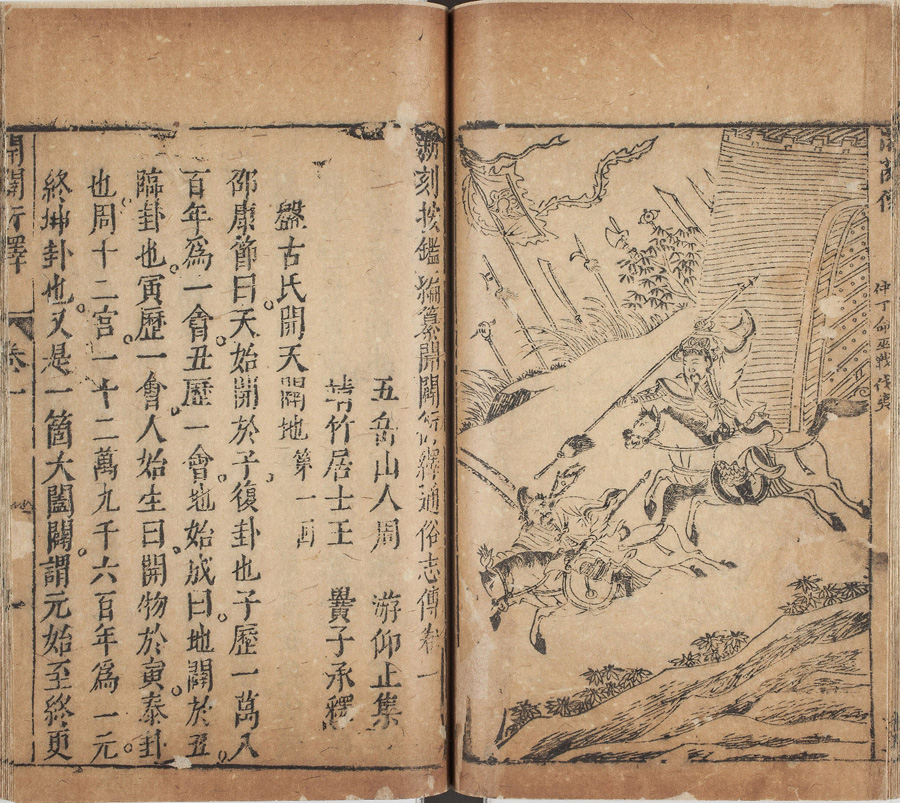 仲丁命巫戰伐夷
新刻按鑑編纂開闢衍繹通俗志傳卷一
五岳山人周 游仰止集
靖竹居士王 黌子承釋
盤古氏開天闢地 第一囬
邵康節曰。天始開於子。復卦也子歷一萬八
百年爲一會。丑歷一會。地始成曰。地闢於丑。
臨卦也。寅歷一會。人始生。曰開物於寅。泰卦
也。周十二宮。一十二萬九千六百年爲一元。
終坤卦也。又是一箇大闔闢。謂元始至終更
開闢衍繹 卷一